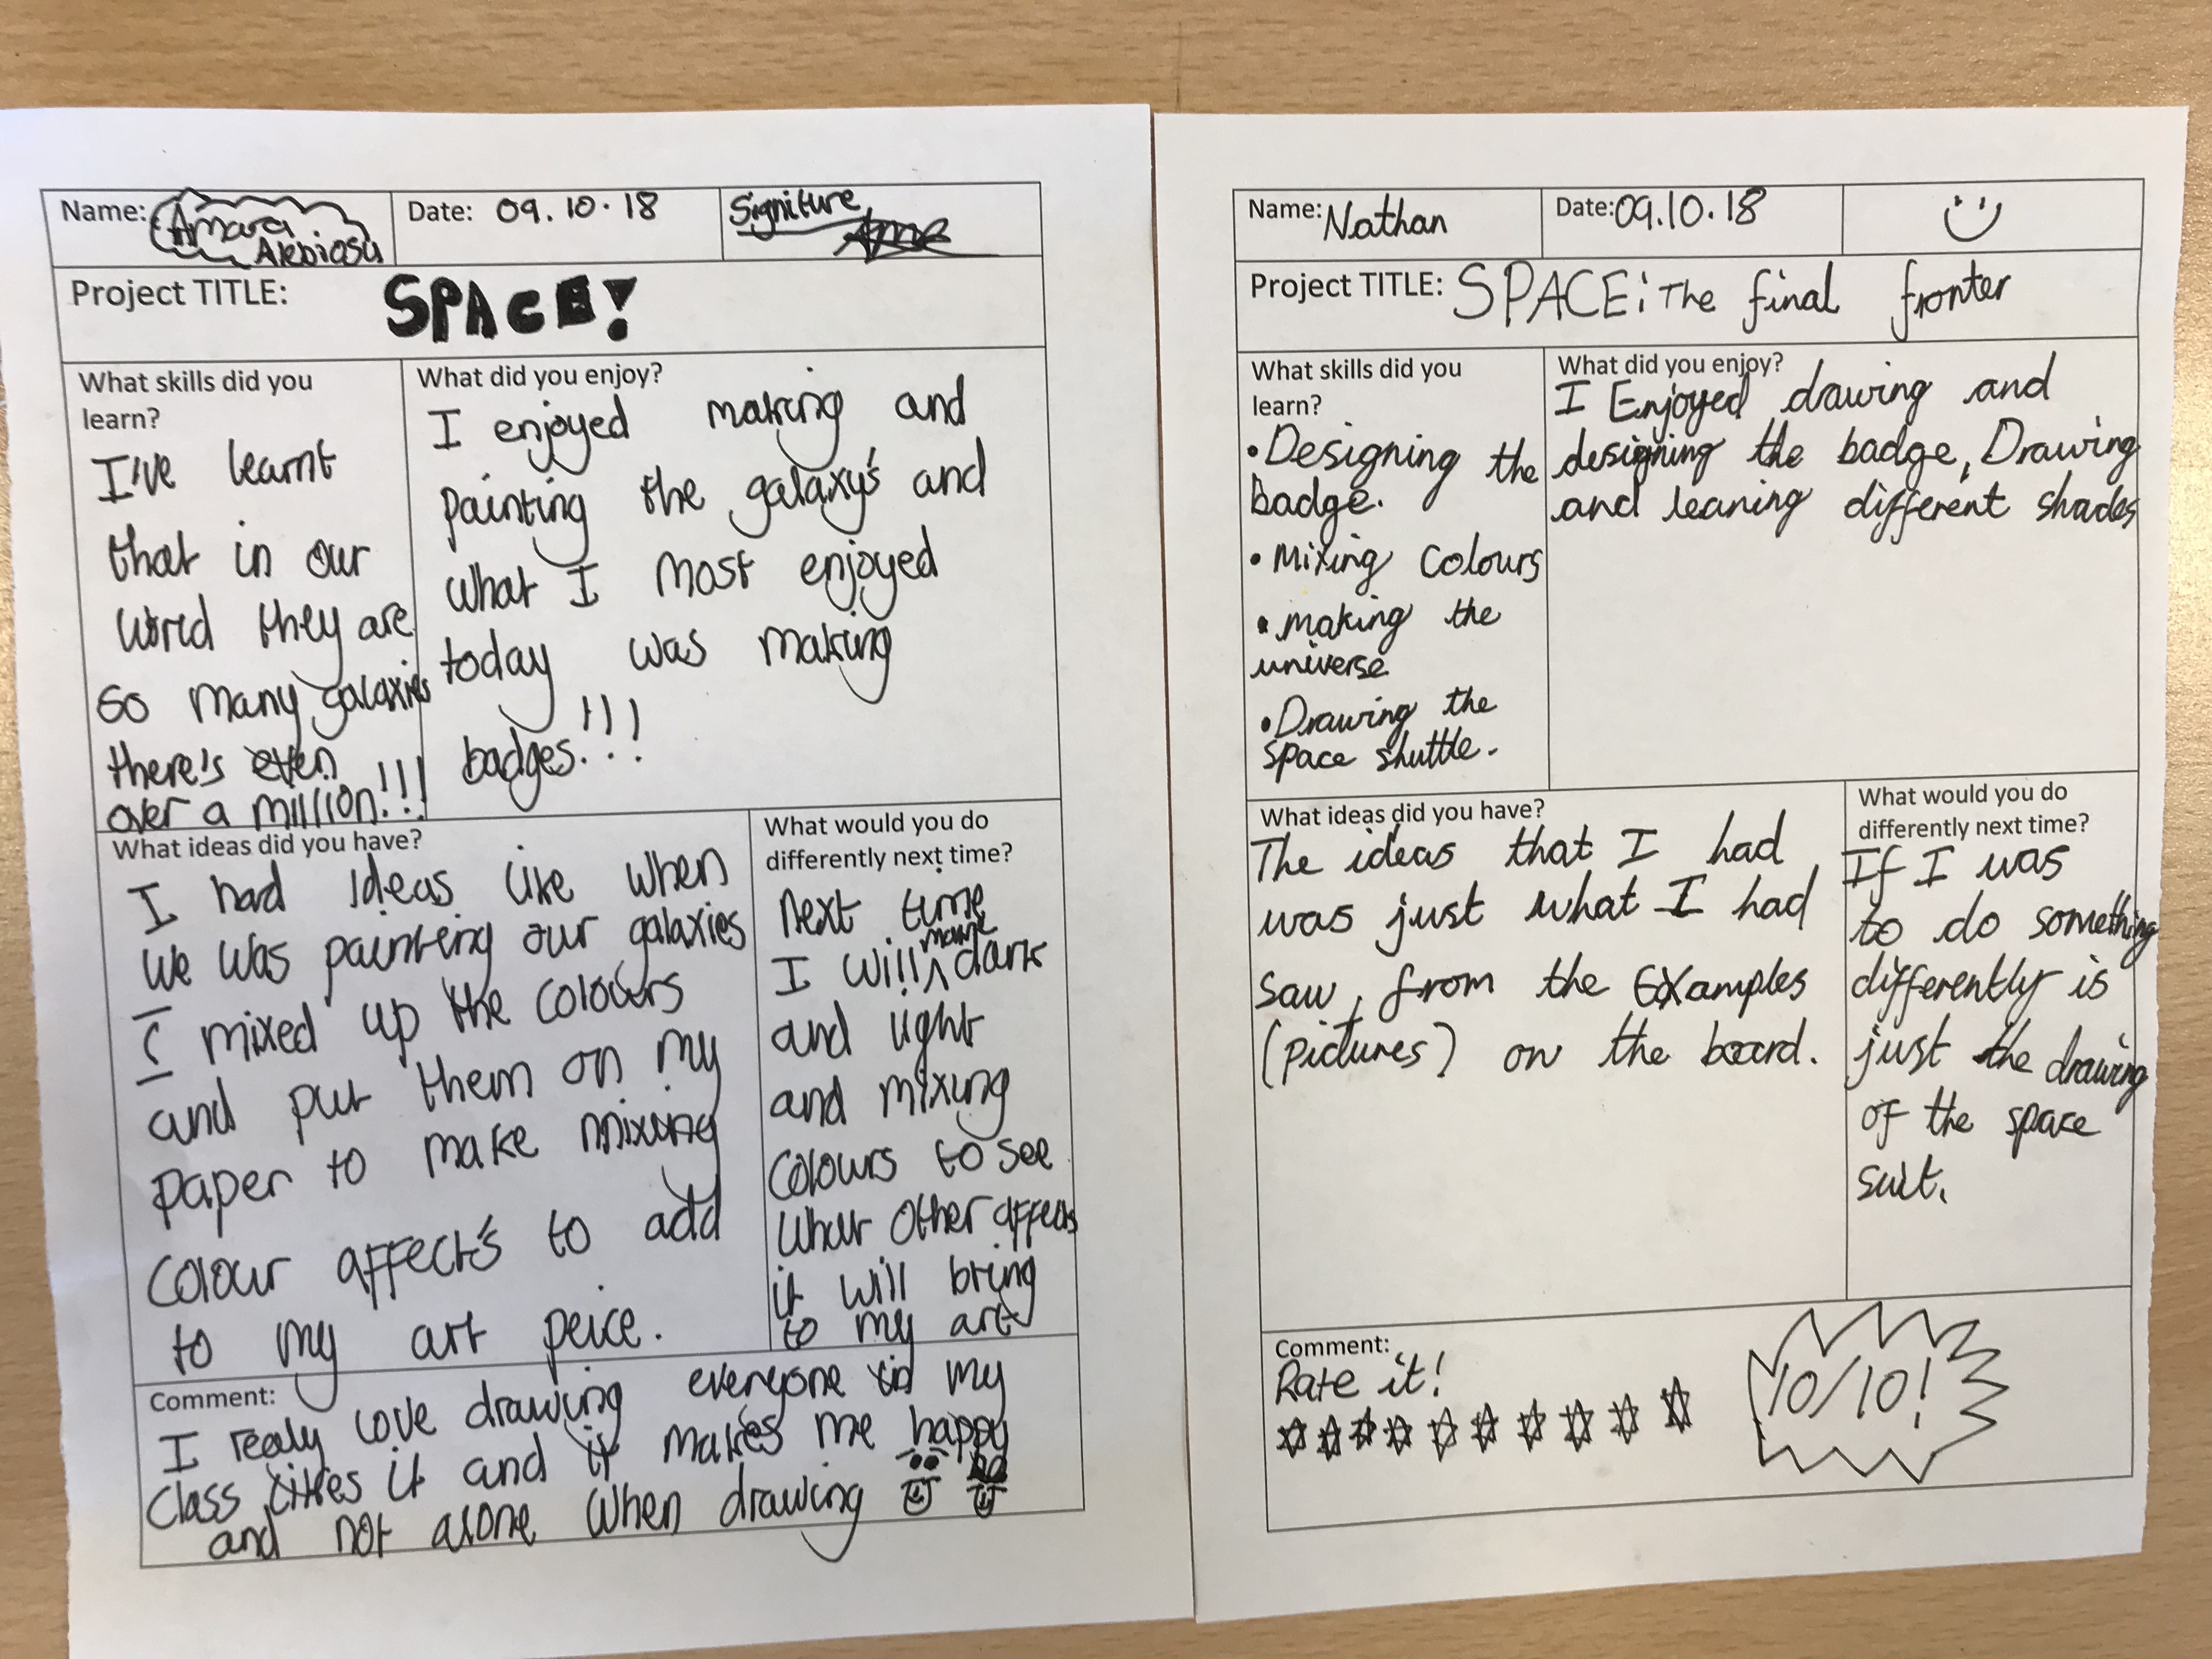 Name: Amara Alebiosu
Date: 09.10.18
Signiture
Project TITLE: SPACE!
What skills did you
learn?
I've learnt
that in our
world they are
so many galaxies
there's even
over a million!!!
What did you enjoy?
I enjoyed making and
painting the galaxy's and
what I most enjoyed
today was making
badges!!!
What ideas did you have?
I had ideas like when
we was painting our galaxies
I mixed up the colours
and put them on my
paper to make mixing
colour affects to add
to my art peice.
What would you do
differently next time?
Next time
I will make dark
and light
and mixing
colours to see
what other affects
it will bring
to my art
Comment:
I realy love drawing everyone in my
class likes it and it makes me happy
and not alone when drawing
Name: Nathan
Date: 09.10.18
Project TITLE: SPACE: The final fronter
What skills did you
learn?
• Designing the
badge.
• Mixing Colours
• making the
universe
• Drawing the
space shuttle.
What did you enjoy?
I Enjoyed drawing and
designing the badge, Drawing
and leaning different shades
What ideas did you have?
The ideas that I had
was just what I had
saw, from the Examples
(pictures) on the board.
What would you do
differently next time?
If I was
to do something
differently is
just the drawing
of the space
suit.
Comment:
Rate it!
10/10!